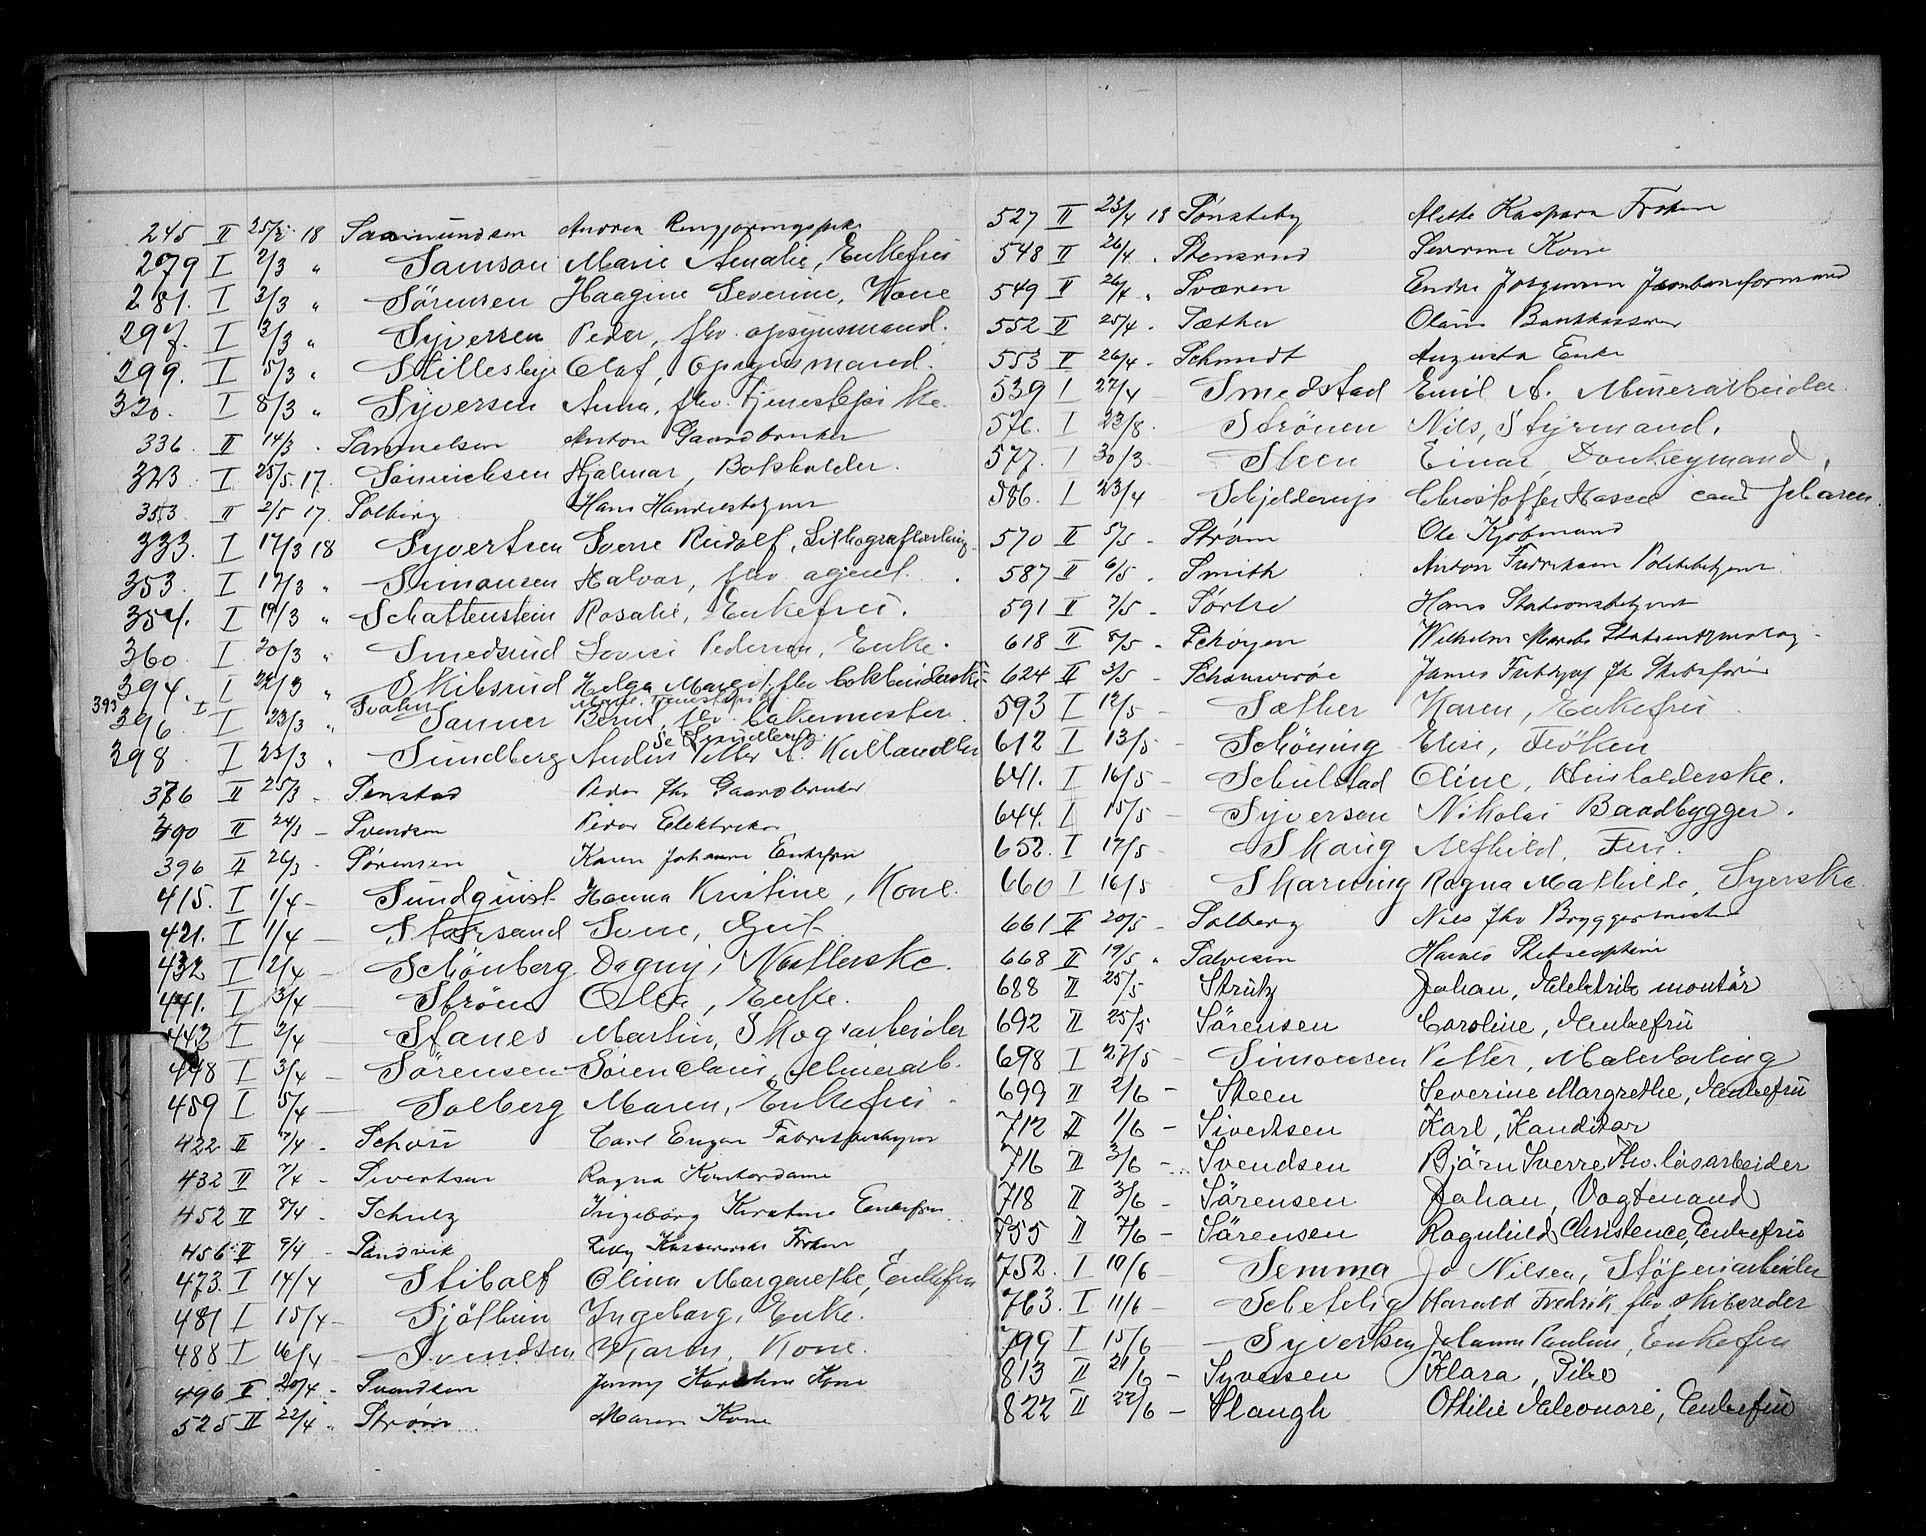 245 II 25/2 18 Saamundsen Andrea Rengjøringspike
279 I 2/3 " Samson Marie Amalie, Enkefru
281. I 3/3 " Sørensen Haagine Severine, Kone
297. I 3/3 " Syversen Peder, fhv. opsynsmand.
299. I 5/3 " Stillesbye Olaf, Opsynsmand.
320. I 8/3 " Syversen Anna, fhv. tjenestepike.
336. II 14/3 . Samuelsen Anton Gaardbruker
323 I 25/5.17. Sönnichsen Hjalmar, Bokholder.
353 II 2/5 17. Solberg Hans
333. I 17/3 18 Syvertsen Sverre Rudolf, Litografløerling.
353. I 17/3 " Simonsen Halvar, fhv. agent.
354. I 19/3 " Schattenstein Rosalie, Enkefru.
360. I 20/3 " Smedsrud Lovise Pedersen, Enke.
394. I 22/3 " Skibsrud Helga Margit fhv bokbinderske
393 I Svahn Marie, Tjenestepike
396. I 23/3 " Sanner Bernt, fhv. bakermester.
se Sundberg
398. I 23/3 " Sundberg Anders Petter A. Kulhandler
376 II 25/3 - Senstad Peder fhv Gaardbruker
390 II 24/3 - Svendsen Peder Elektriker
396 II 26/3 . Sørensen Karen Johanne Enkefru
415. I 1/4 - Sundquist Hanna Kristine, Kone.
421. I 1/4 - Storsand Svene, Gut.
432 I 2/4 - Schönberg Dagny, Vaskerske.
441. I 3/4 - Ström Olea, Enke.
443 I 2/4 - Stanes Martin, Skogsarbeider
448 I 3/4 - Sørensen Søren Claus, Murerarb.
459 I 5/4 - Solberg Maren, Enkefru -
422 II 4/4 - Schou Carl Einar Fabrikbestyrer
432 II 7/4 - Sivertsen Ragna Kontordame
452 II 8/4 - Schulz Ingeborg Kirstine Enkefru
456 II 9/4 - Sandvik Frøken
473. I 14/4 Stibolt Olina Margarethe, Enkefru
481 I 15/4 - Sjölhun Ingeborg, Enke.
488 I 16/4 - Svendsen Karen, Kone.
496 II 20/4 - Svendsen Jenny Karoline Kone
525 II 22/4 " Strøm Maren Kone
527 II 23/4 18 Sønsteby Mette Kaspara Frøken
548 II 26/4 . Stensrud Severine Kone
549 II 26/4 " Sværen Endre Jørgensen Jernbaneformand
552 II 25/4 . Sæther Olaus Bankkasserer
553 II 26/4 - Schmidt Augusta Enke
539 I 27/4 Smedstad Emil A. Minerarbeider
576. I 23/8. Strönen Nils, Styrmand.
577. I 30/3. Steen Einar, Donkeymand.
586. I 23/4 Schjelderup Christoffer Hansen cand. pharm.
570 II 5/5 - Strøm Ole Kjøbmand
587 II 6/5 . Smith Anton Fredriksen Politibetjent
591 II 7/5 - Sørlie Hans Stationsbetjent
618 II 8/5 - Schøyen Wilhelm Statsentomolog -
624 II 3/5 - Schanveröe James fhv Skibsfører
593 I 12/5 - Sæther Karen, Enkefru
612 I 13/5 - Schöning Elise, Fröken
641. I 16/5 - Schulstad Oline, Husholderske.
644. I 15/5 - Syversen Nikolai Baadbygger.
652. I 17/5 - Skaug Alfhild, Fru.
660 I 16/5 Skarning Ragna Mathilde, Syerske.
661 II 20/5 - Solberg Nils fhv Bryggermester
668 II 19/5 " Salvesen Skibscaptein
688 II 25/5 Strutz Johan, Elektrik montör
692 II 25/5 Sörensen Caroline, Enkefru
698 I 27/5 - Simonsen Petter, Malerlærling
699 II 2/6 - Steen Severine Margrethe, Enkefru
712 II 1/6 - Sivertsen Karl, Kanditor
716 II 3/6 - Svendsen Björn Sverre Fhv. lösarbeider
718 II 3/6 - Sörensen Johan, Vogtmand
755 II 7/6 - Sörensen Ragnhild Christence, Enkefru
752. I 10/6 Semma Jo Nilsen, Stöperiarbeider
763. I 11/6 - Schetelig Harald Fredrik, fhv skibsreder
799 I 15/6 - Syvertsen Johanne Pauline, Enkefru
813 II 21/6 - Syversen Klara, Pike
822 II 22/6 - Slaugh Ottilie Eleonore, Enkefru